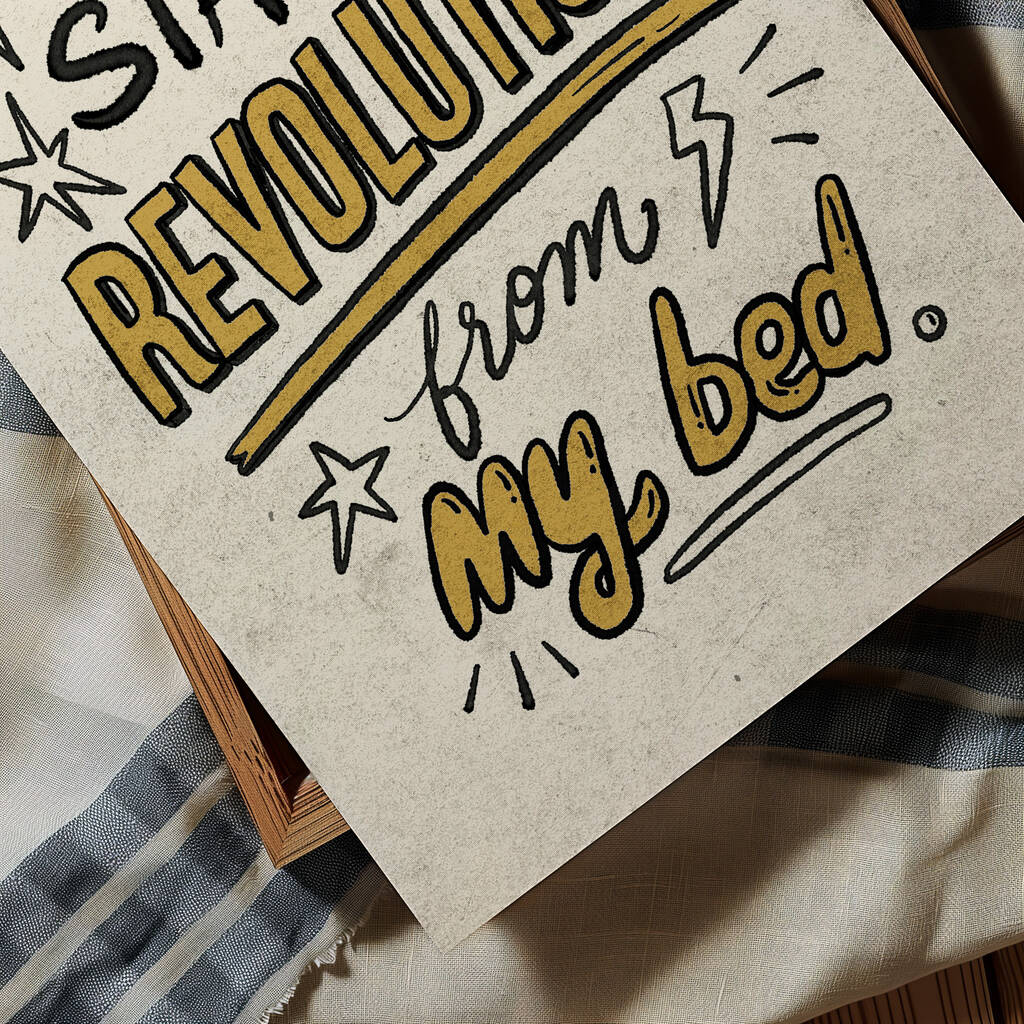 STA
REVOLUTIO
from
my bed.